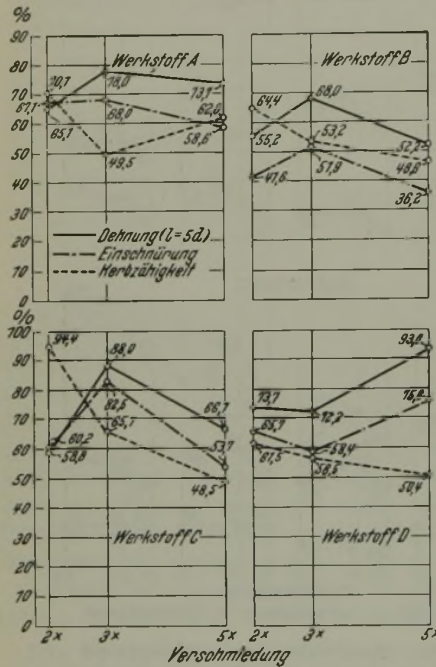 %
90
80
70
60
50
40
30
20
10
0
Werkstoff A
70,7
67,1
65,1
78,0
68,0
49,5
73,1
62,0
58,6
Dehnung (l=5d)
Einschnürung
Kerbzähigkeit
Werkstoff B
64,4
55,2
41,6
68,0
53,2
51,9
52,2
46,6
36,2
%
100
90
80
70
60
50
40
30
20
10
0
94,4
60,2
58,8
88,0
82,5
65,1
66,7
53,7
48,5
Werkstoff C
73,7
65,7
61,5
72,2
58,4
56,5
93,0
50,4
Werkstoff D
2x 3x 5x 2x 3x 5x
Verschmiedung